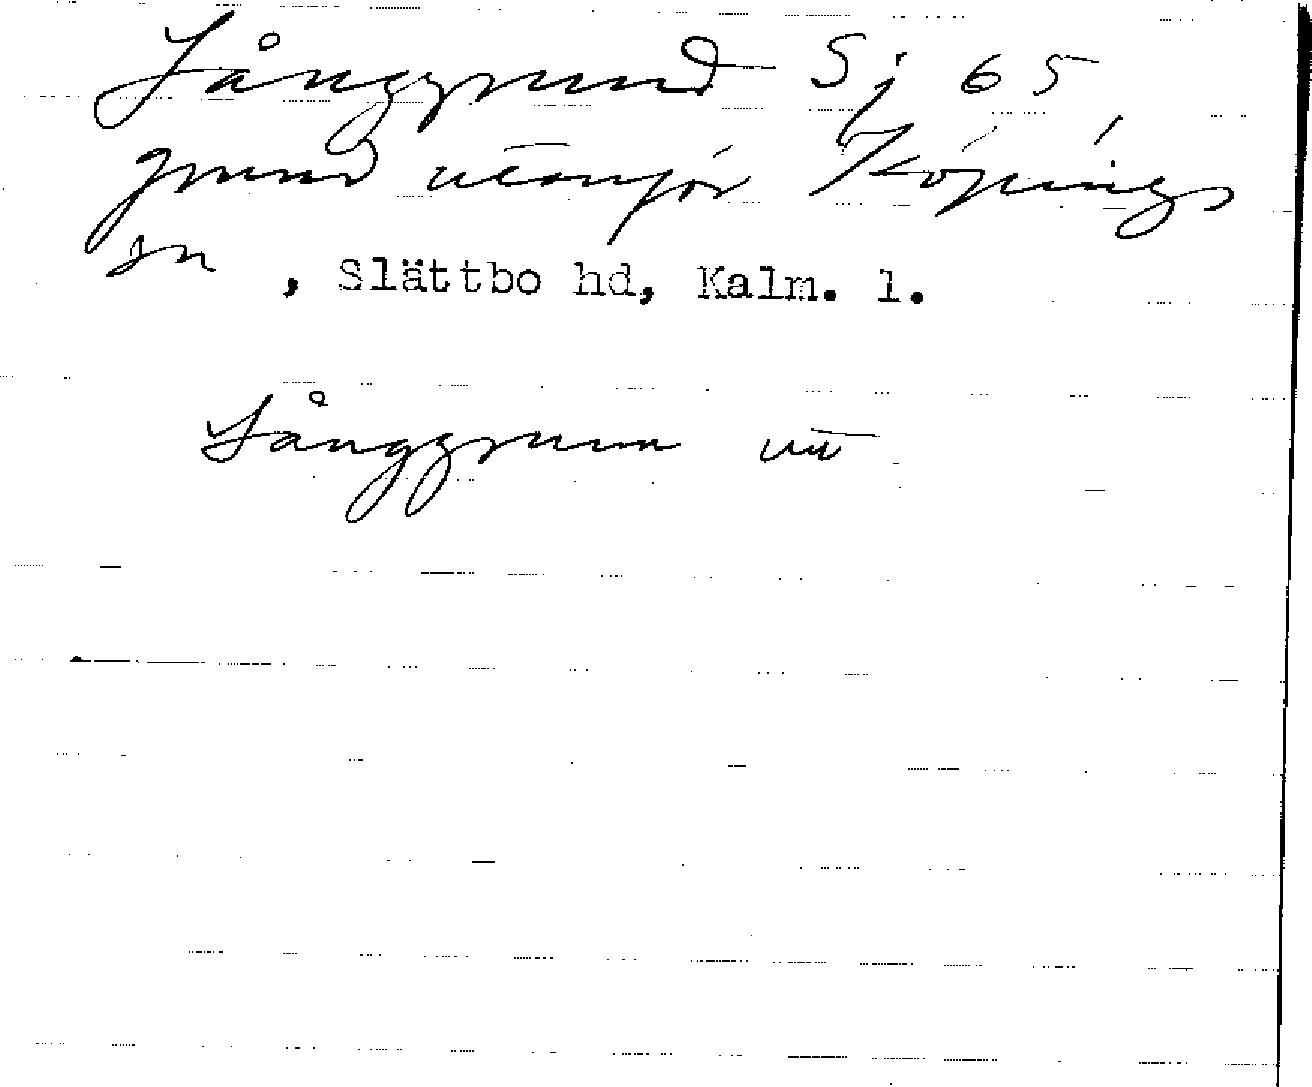 Långgrund Sj 65
grund utanför Köpings
sn , Slättbo hd, Kalm. l.
Långgrunn